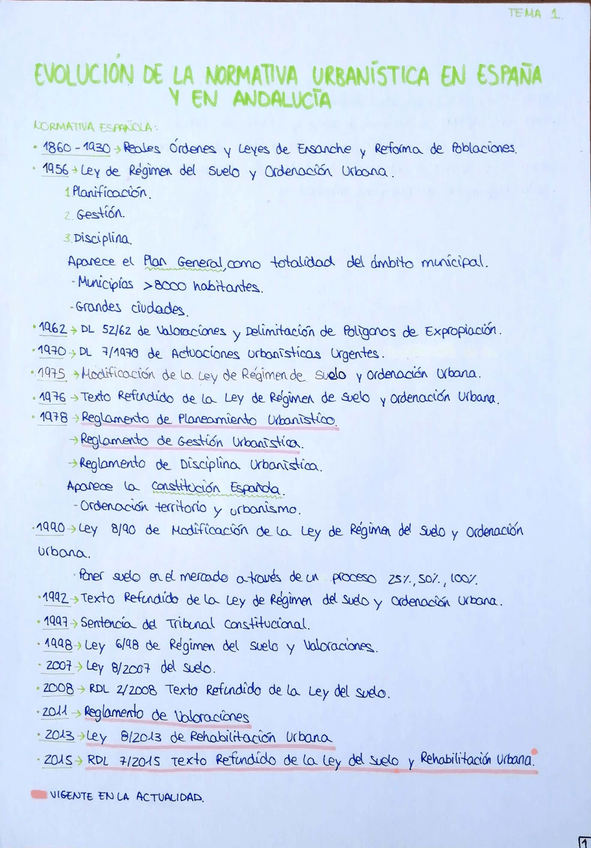 TEMA 1.
EVOLUCIÓN DE LA NORMATIVA URBANÍSTICA EN ESPAÑA
Y EN ANDALUCÍA
NORMATIVA ESPAÑOLA:
· 1860-1930 → Reales Órdenes y Leyes de Ensanche y Reforma de Poblaciones.
· 1956 → Ley de Régimen del Suelo y Ordenación Urbana.
1. Planificación.
2. Gestión.
3. Disciplina.
Aparece el Plan General, como totalidad del ámbito municipal.
- Municipios >8000 habitantes.
- Grandes ciudades.
· 1962 → DL 52/62 de Valoraciones y Delimitación de Polígonos de Expropiación.
· 1970 → DL 7/1970 de Actuaciones Urbanísticas Urgentes.
· 1975 → Modificación de la Ley de Régimen de Suelo y Ordenación Urbana.
· 1976 → Texto Refundido de la Ley de Régimen de Suelo y Ordenación Urbana.
· 1978 → Reglamento de Planeamiento Urbanístico.
→ Reglamento de Gestión Urbanística.
→ Reglamento de Disciplina Urbanística.
Aparece la Constitución Española.
- Ordenación territorio y urbanismo.
· 1990 → Ley 8/90 de Modificación de la Ley de Régimen del Suelo y Ordenación
Urbana.
· Poner suelo en el mercado a través de un proceso 25%, 50%, 100%.
· 1992 → Texto Refundido de la Ley de Régimen del Suelo y Ordenación Urbana.
· 1997 → Sentencia del Tribunal Constitucional.
· 1998 → Ley 6/98 de Régimen del Suelo y Valoraciones.
· 2007 → Ley 8/2007 del suelo.
· 2008 → RDL 2/2008 Texto Refundido de la Ley del suelo.
· 2011 → Reglamento de Valoraciones
· 2013 → Ley 8/2013 de Rehabilitación Urbana
· 2015 → RDL 7/2015 Texto Refundido de la Ley del suelo y Rehabilitación Urbana.
VIGENTE EN LA ACTUALIDAD.
1